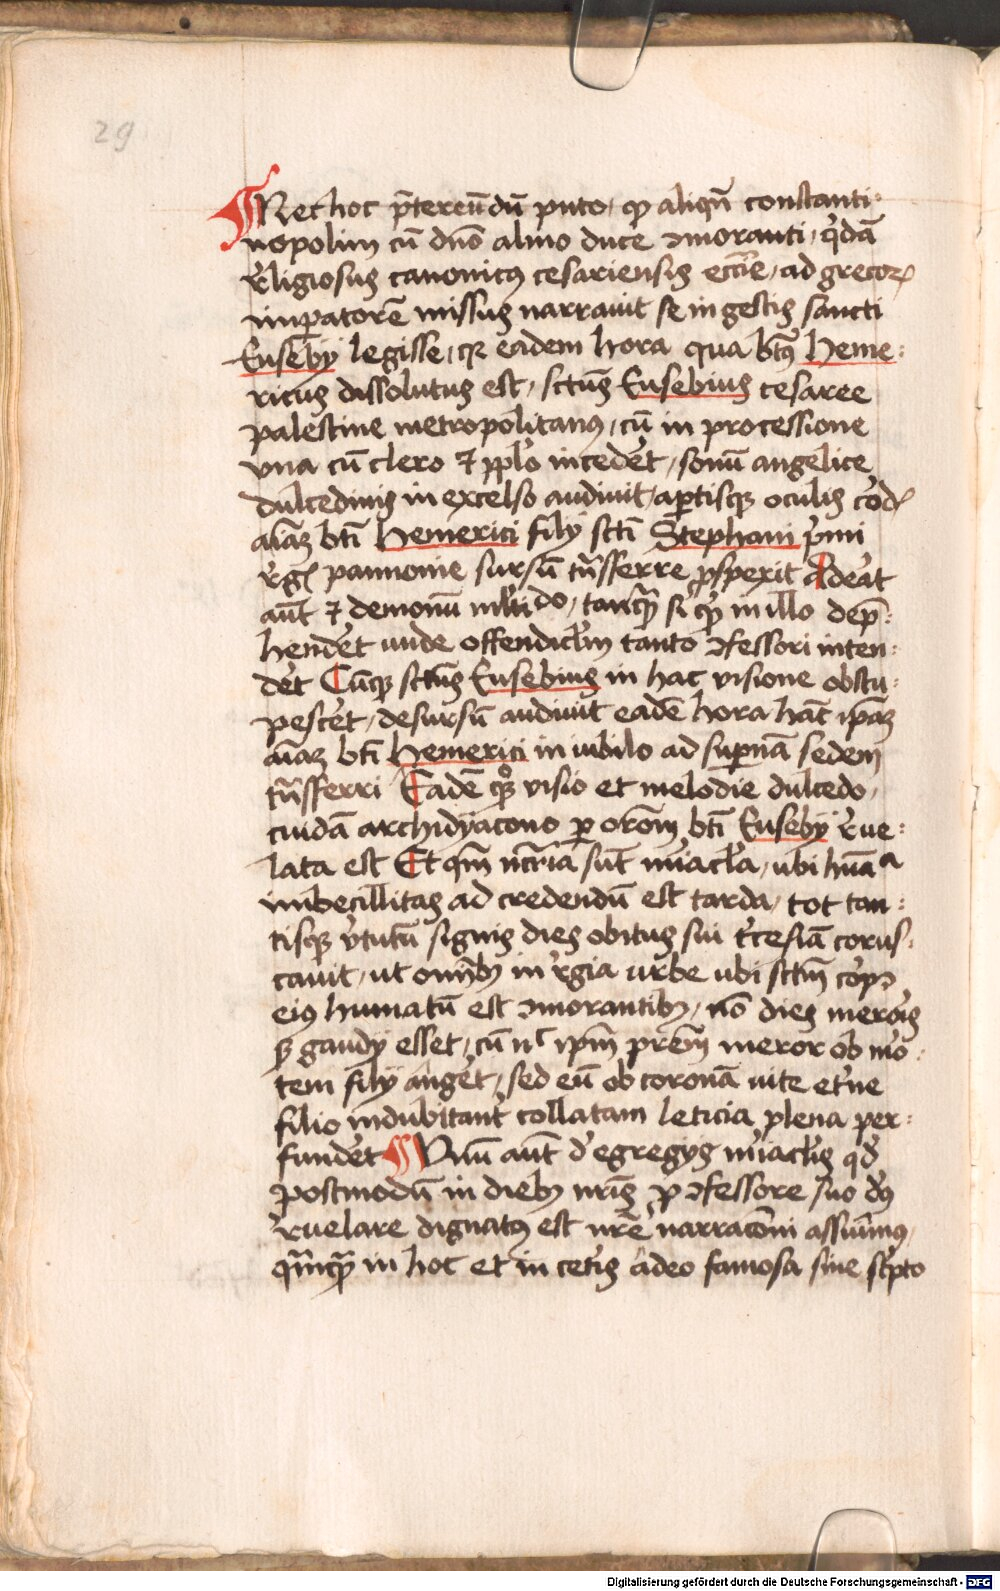 29
Nec hoc p̄tereūdū puto, ꝙ aliqn̄ constanti:
nopolim cū dnō almo duce ꝯmoranti, qͥdā
rͤligiosus canonicꝰ cesariensis eccͥe, ad grecoꝝ
imꝑatorē missus narrauit se in gestis sancti
Eusebÿ legisse, qꝫ eadem hora qua btꝰ Heme:
ricus dissolutus est, sctus Eusebius cesaree
palestine metropolitanꝰ, cū in processione
vna cū clero ⁊ pplo incederͤt, sonū angelice
dulcedinis in excelso audiuit, aꝑtisqꝫ oculis
aīaꝫ bti Hemerici filÿ scti Stephani pͥmi
rͤg̅ pannonie sursū tn̄sferre ꝓspexit Aderāt
aūt ⁊ demonū ml̄tido, tanqꝫ si qͥp̄ in illo dep̄:
henderͤt unde offendiclm̄ tanto ꝯfessori inten:
derͤt Cūqꝫ sctus Eusebius in hac visione obstu:
pescerͤt, desursū audiuit eadē hora hāc ip̄aꝫ
aīaꝫ bti Hemerici in iubilo ad suꝑnā sedem
tn̄sferri Eadē qꝫ visio et melodie dulcedo,
cuidā archidyacono ꝑ orom̄ bti Eusebÿ rͤue:
lata est Et qm̄ ncͥria sūt mͥacͣla, ubi hūāᵃ
imbecillitas ad credendū est tarda, tot tan:
tisqꝫ vͥtutū signis dies obitus sui tͨcesiā corus:
cauit, ut omībꝫ in rͤgia urbe ubi sctm̄ corpꝰ
eiꝰ humatū est ꝯmorantibꝫ, nō dies meroris
sꝫ gaudÿ esset, cū nͨ ip̄m prem̄ meror ob mo:
tem filÿ angerͤt, sed eū ob coronā uite etͥne
filio indubitantͥ collatam leticia plena per:
funderͤt Vnū aūt dͤ egregÿs mͥaclis qd̄
postmodū in diebꝫ nris̄ ꝓ ꝯfessore suo dꝰ
rͤuelare dignatꝰ est nrē narracōni assum̄ꝰ,
qm̄qꝫ in hoc et in cetͥs adeo famosa siue scͥpto
Digitalisierung gefördert durch die Deutsche Forschungsgemeinschaft - DFG